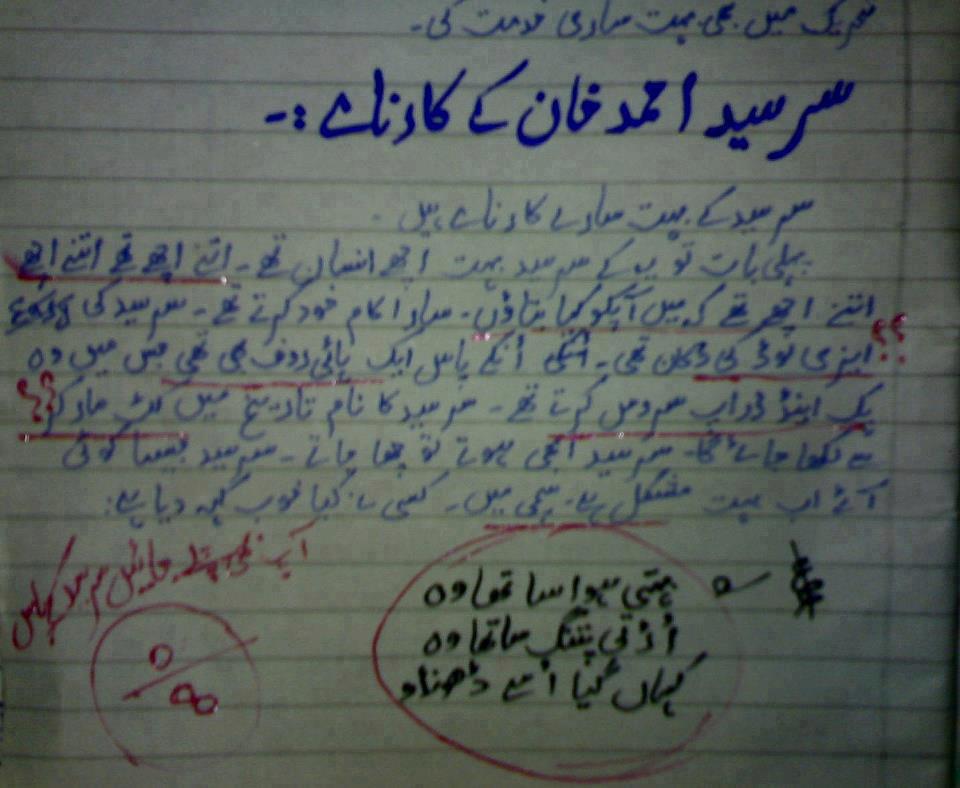 تحریک میں بھی بہت ساری خدمت کی۔
سر سید احمد خان کے کارنامے :-
سر سید کے بہت سارے کارنامے ہیں۔
پہلی بات تو یہ کے سر سید بہت اچھے انسان تھے۔ اتنے اچھے تھے اتنے اچھے
اتنے اچھے تھے کہ میں آپکو کیا بتاؤں۔ سارا کام خود کرتے تھے۔ سر سید کی
ایزی لوڈ کی دکان تھی۔ انکے پاس ایک ہائی روف بھی تھی جس میں وہ
؟؟
پک اینڈ ڈراپ سروس کرتے تھے۔ سر سید کا نام تاریخ میں کٹ مار کر
؟؟
سے لکھا جائے گا۔ سر سید ابھی ہوتے تو چھا جاتے۔ سر سید جیسا کوئی
آئے اب بہت مشکل ہے۔ سہی میں۔ کسی نے کیا خوب کہہ دیا ہے:
بہتی ہوا سا تھا وہ
اڑتی پتنگ سا تھا وہ
کہاں گیا اُسے ڈھونڈو
آپ بھی چلے جائیں سر سید کے پاس
0